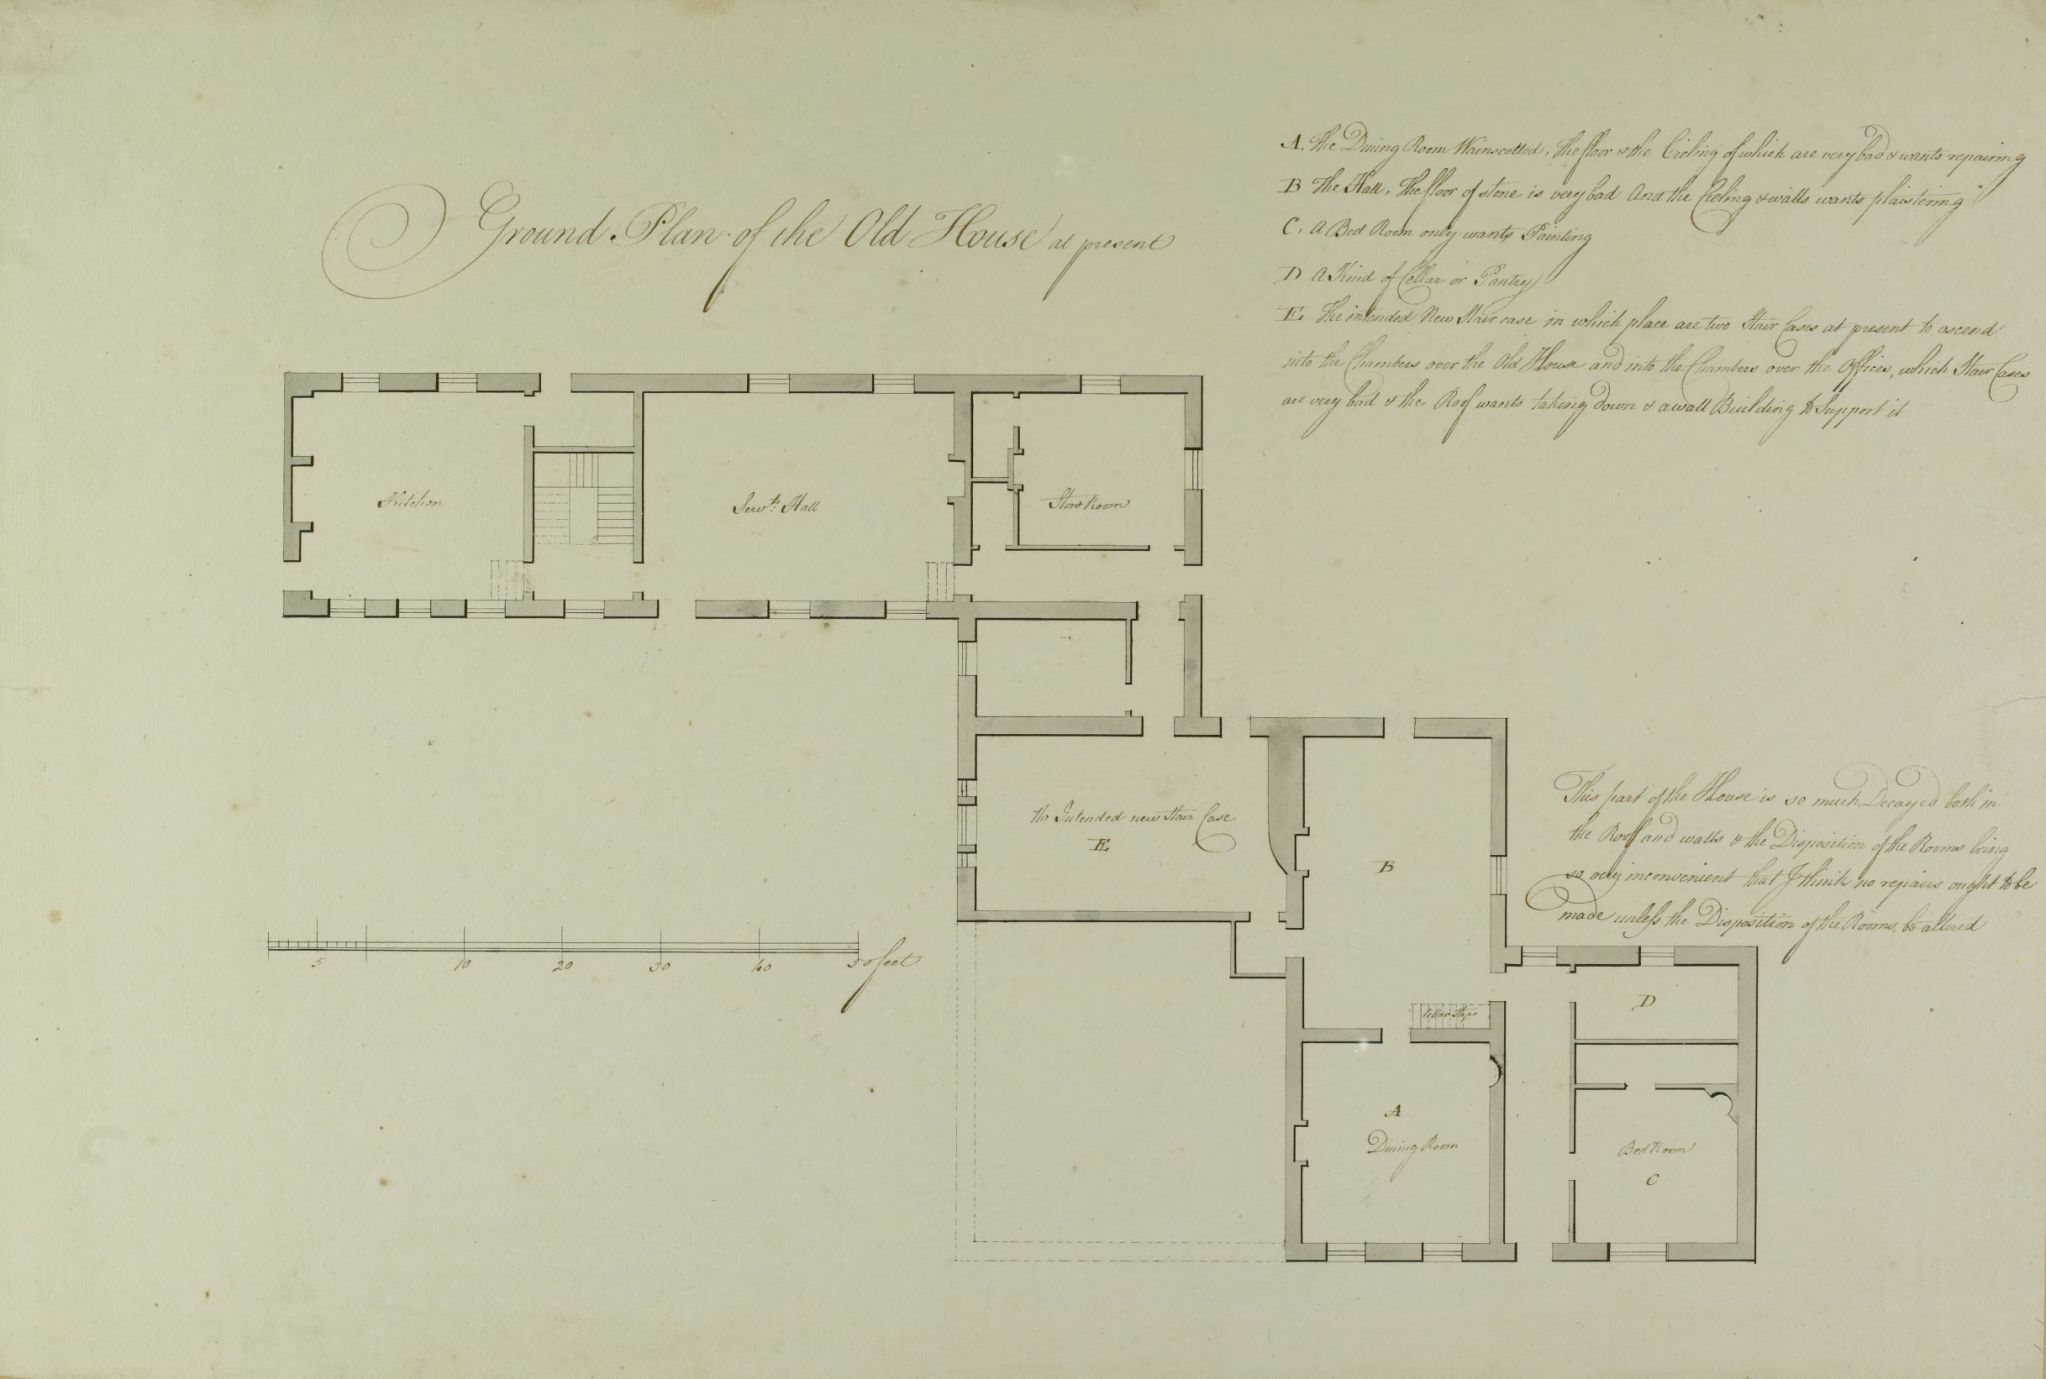 Ground Plan of the Old House at present
A. The Dining Room Wainscotted, the floor & the Cieling of which are very bad & wants repairing
B The Hall, The floor of stone is very bad And the Cieling & walls wants plaistering
C. A Bed Room only wants Painting
D A Kind of Cellar or Pantry
E. The intended New Stair case in which place are two Stair Cases at present to ascend
into the Chambers over the Old House and into the Chambers over the Offices, which Stair Cases
are very bad & the Roof wants taking down & a wall Building to Support it
Kitchen
Servts. Hall
Store Room
the Intended new Stair Case
E
B
This part of the House is so much Decayed both in
the Roof and walls & the Disposition of the Rooms being
so very inconvenient that I think no repairs ought to be
made unless the Disposition of the Rooms, be altered
5 10 20 30 40 50 feet
D
Cellar Steps
A
Dining Room
Bed Room
C